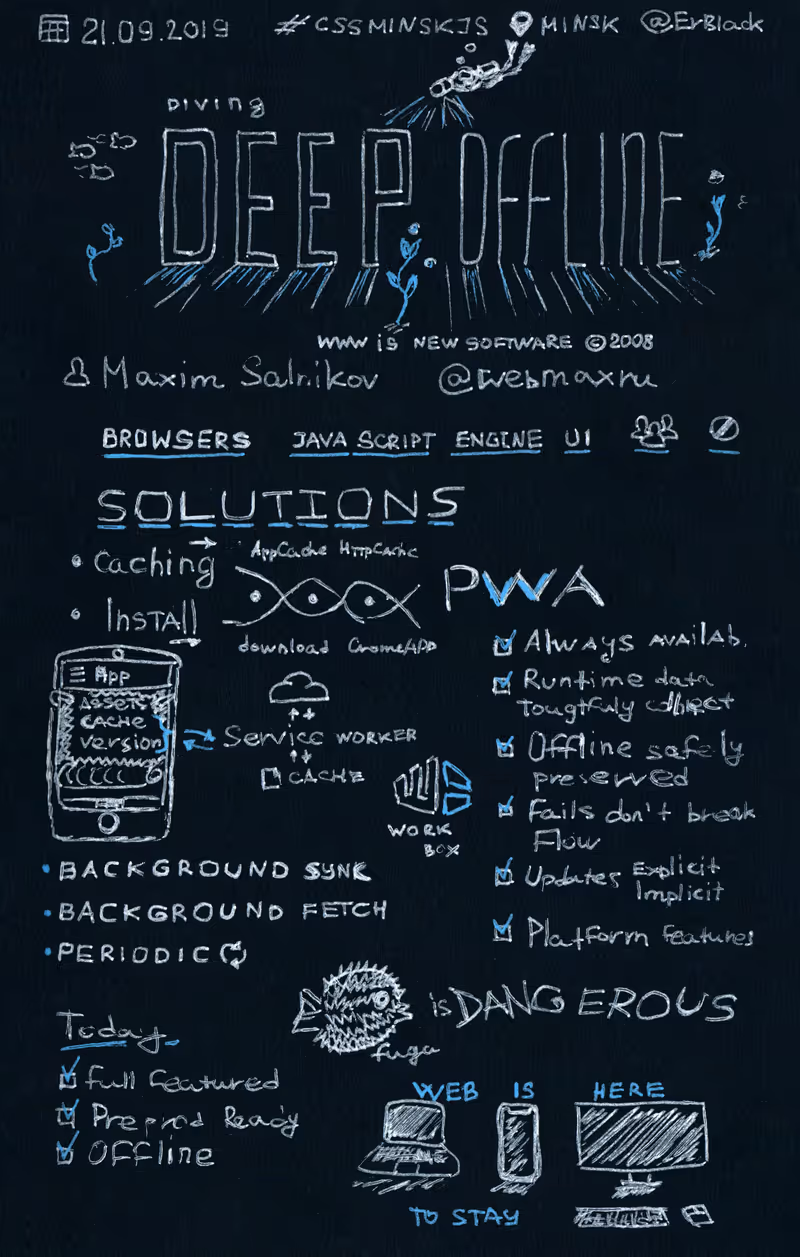 21.09.2019 #CSSMINSKJS MINSK @ErBlack
DIVING
DEEP OFFLINE
WWW is NEW SOFTWARE ©2008
Maxim Salnikov @webmaxru
BROWSERS JAVA SCRIPT ENGINE UI
SOLUTIONS
• Caching → AppCache HttpCache
• INSTALL → download CromeAPP
PWA
Always AVAILAB.
Runtime data
tougtfuly collect
Offline safely
preserved
Fails don't break
Flow
Updates Explicit
Implicit
Platform features
App
ASSETS
CACHE
Version
Service WORKER
CACHE
WORK
BOX
• BACKGROUND SYNC
• BACKGROUND FETCH
• PERIODIC
fugu
is DANGEROUS
Today
Full Featured
Preprod Ready
Offline
WEB IS HERE
TO STAY